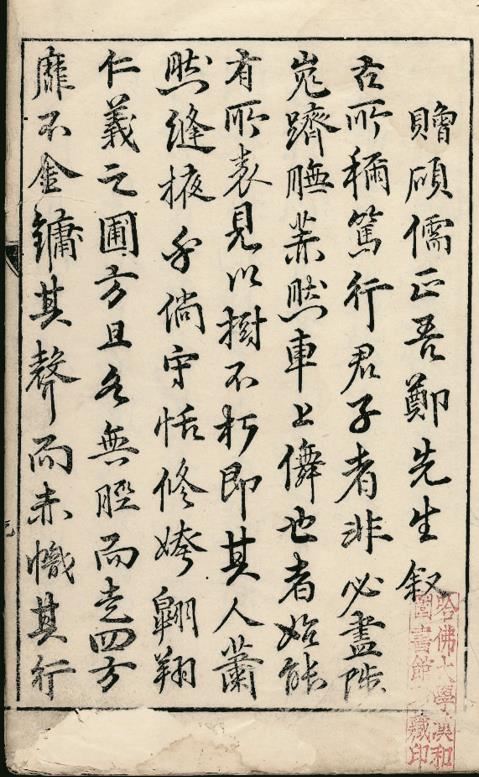 贈碩儒正吾鄭先生叙
古所稱篤行君子者非必盡陟
嵬躋膴然車上儛也者始能
有所表見以樹不朽即其人蕭
然縫掖乎倘守恬修姱翺翔
仁義之圃方且名無脛而走四方
靡不金鏞其聲而赤幟其行
哈佛大學漢和
圖書館藏印